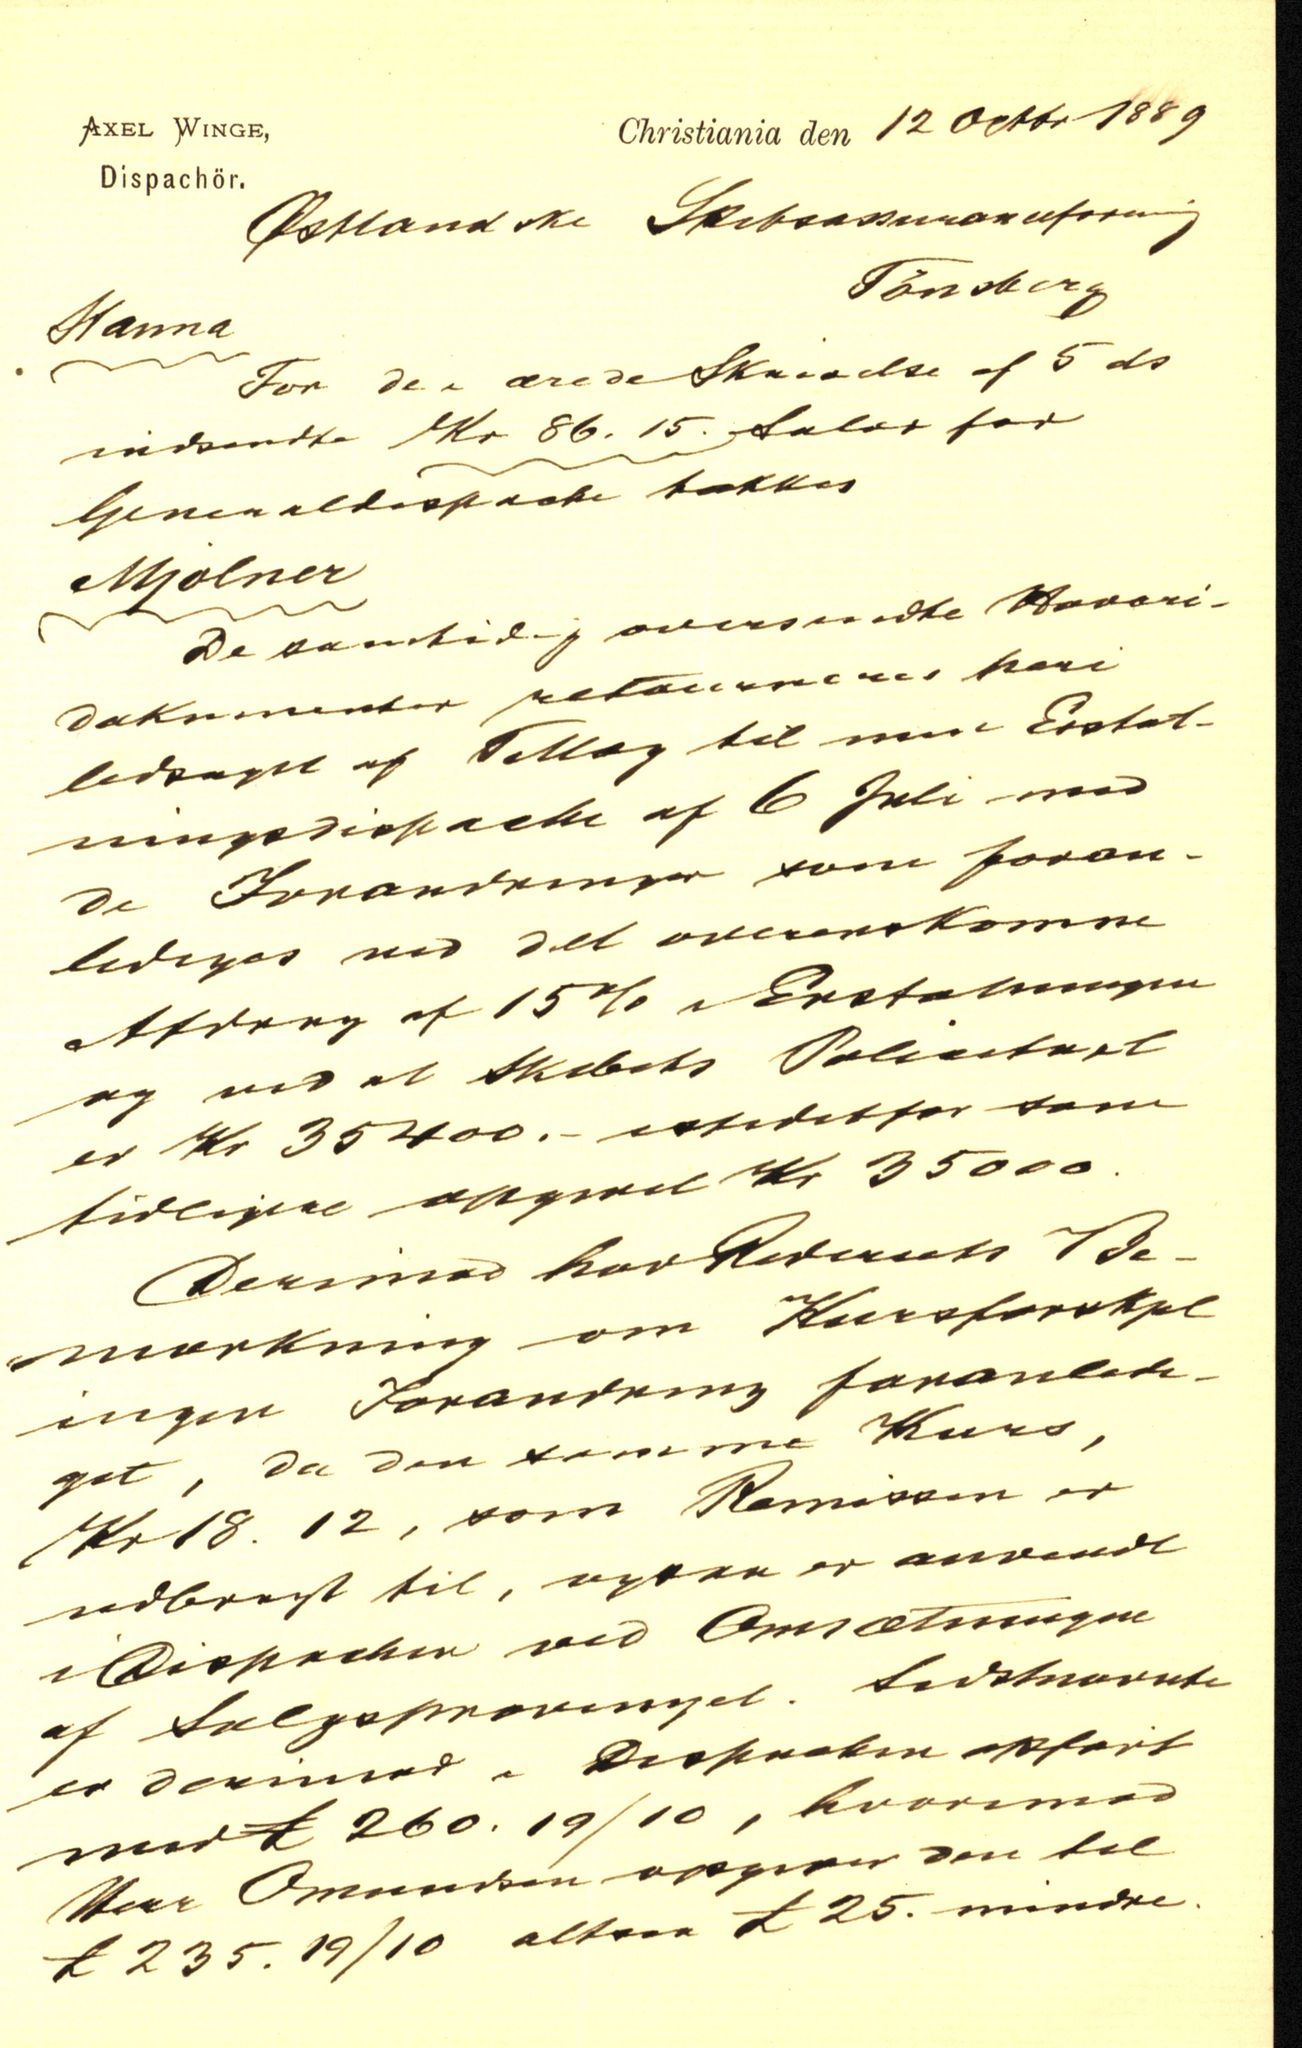 AXEL WINGE,
Dispachör.
Christiania den 12 Octbr 1889
Østlandske Skibsassuranceforening
Tönsberg
Hanna
For de i ærede Skrivelse af 5 ds
indsendte Kr 86.15. Salær for
Generaldispache takkes
Mjölner
De samtidig oversendte Havari-
dokumenter retourneres heri
ledsaget af Tillæg til min Erstat-
ningsdispache af 6 Juli med
de Forandringer som foran-
lediges ved det overenskomne
Afdrag af 15% i Erstatningen
og ved at Skibets Politaxt
er Kr 35400.- istedetfor som
tidligere opgivet Kr 35000.
Derimod har Rederiets Be-
mærkning om Kursforskjel
ingen Forandring foranledi-
get, da den samme Kurs,
Kr 18.12, som Remissen er
udbragt til, ogsaa er anvendt
i Dispachen ved Omsætningen
af Salgsprovenyet. Sidstnævnte
er derimod i Dispachen opført
med £ 260.19/10, hvorimod
Herr Omundsen opgiver den til
£ 235.19/10 altsaa £ 25. mindre.